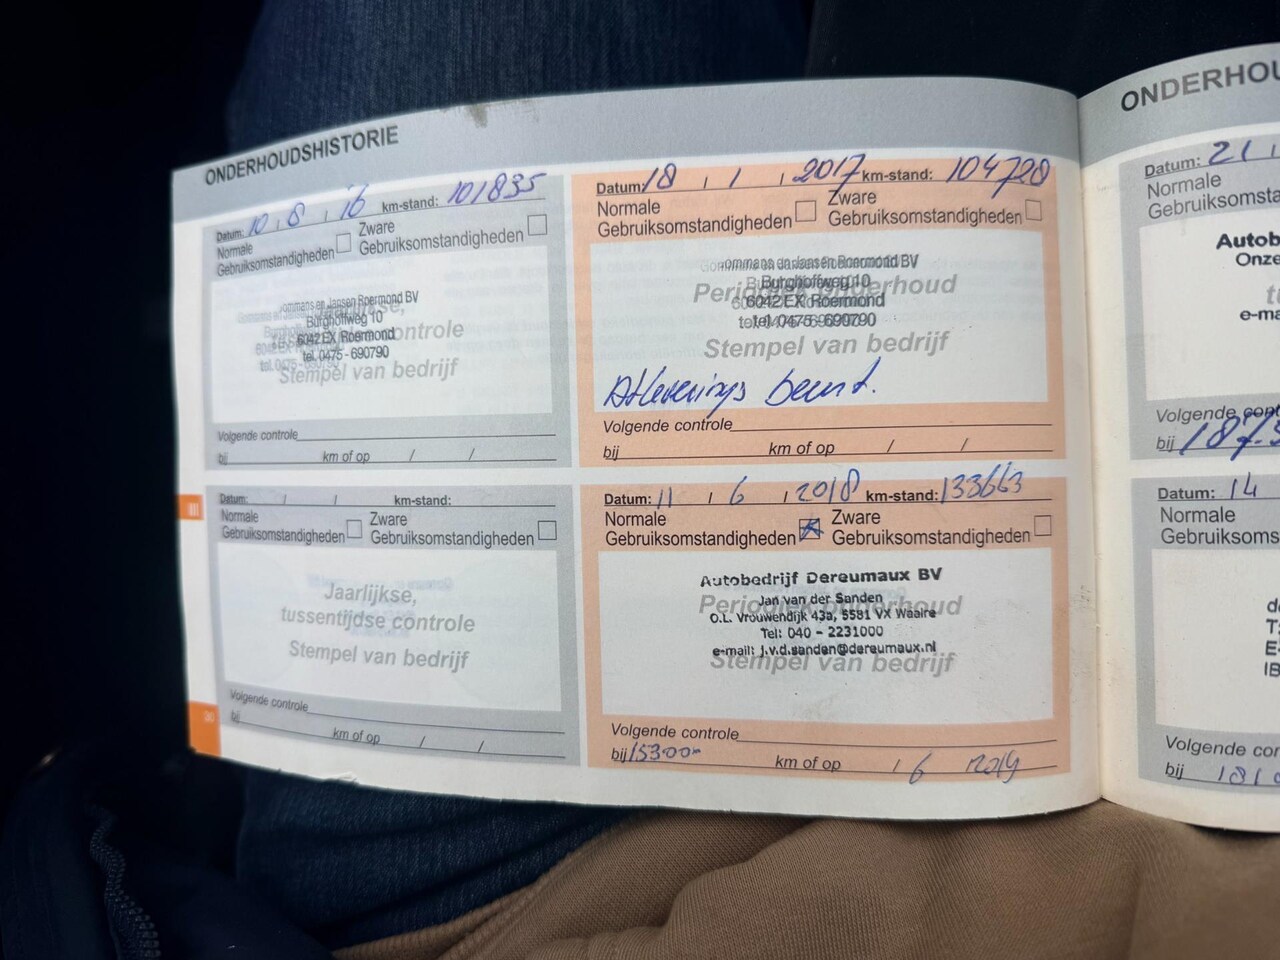 ONDERHOUDSHISTORIE
Datum: 10 . 8 . 16 km-stand: 101835
Normale Gebruiksomstandigheden
Zware Gebruiksomstandigheden
ommans en Jansen Roermond BV
Burghoffweg 10
6042 EX Roermond
tel. 0475 - 690790
controle
Stempel van bedrijf
Volgende controle
bij km of op / /
Datum: 18 / 1 / 2017 km-stand: 104728
Normale Gebruiksomstandigheden
Zware Gebruiksomstandigheden
ommans en Jansen Roermond BV
Burghoffweg 10
6042 EX Roermond
tel. 0475 - 690790
Periodiek onderhoud
Stempel van bedrijf
Afleverings beurt.
Volgende controle
bij km of op / /
Datum: / / km-stand:
Normale Gebruiksomstandigheden
Zware Gebruiksomstandigheden
Jaarlijkse,
tussentijdse controle
Stempel van bedrijf
Volgende controle
bij km of op / /
Datum: 11 / 6 / 2018 km-stand: 133663
Normale Gebruiksomstandigheden
Zware Gebruiksomstandigheden
Autobedrijf Dereumaux BV
Jan van der Sanden
Periodiek onderhoud
O.L. Vrouwendijk 43a, 5581 VX Waalre
Tel: 040 - 2231000
e-mail: j.v.d.sanden@dereumaux.nl
Stempel van bedrijf
Volgende controle
bij 153000 km of op / 6 2019
ONDERHOU
Datum: 21
Normale
Gebruiksomsta
Autob
Onze
e-ma
Volgende con
bij 187
Datum: 14
Normale
Gebruiksoms
Volgende co
bij 181